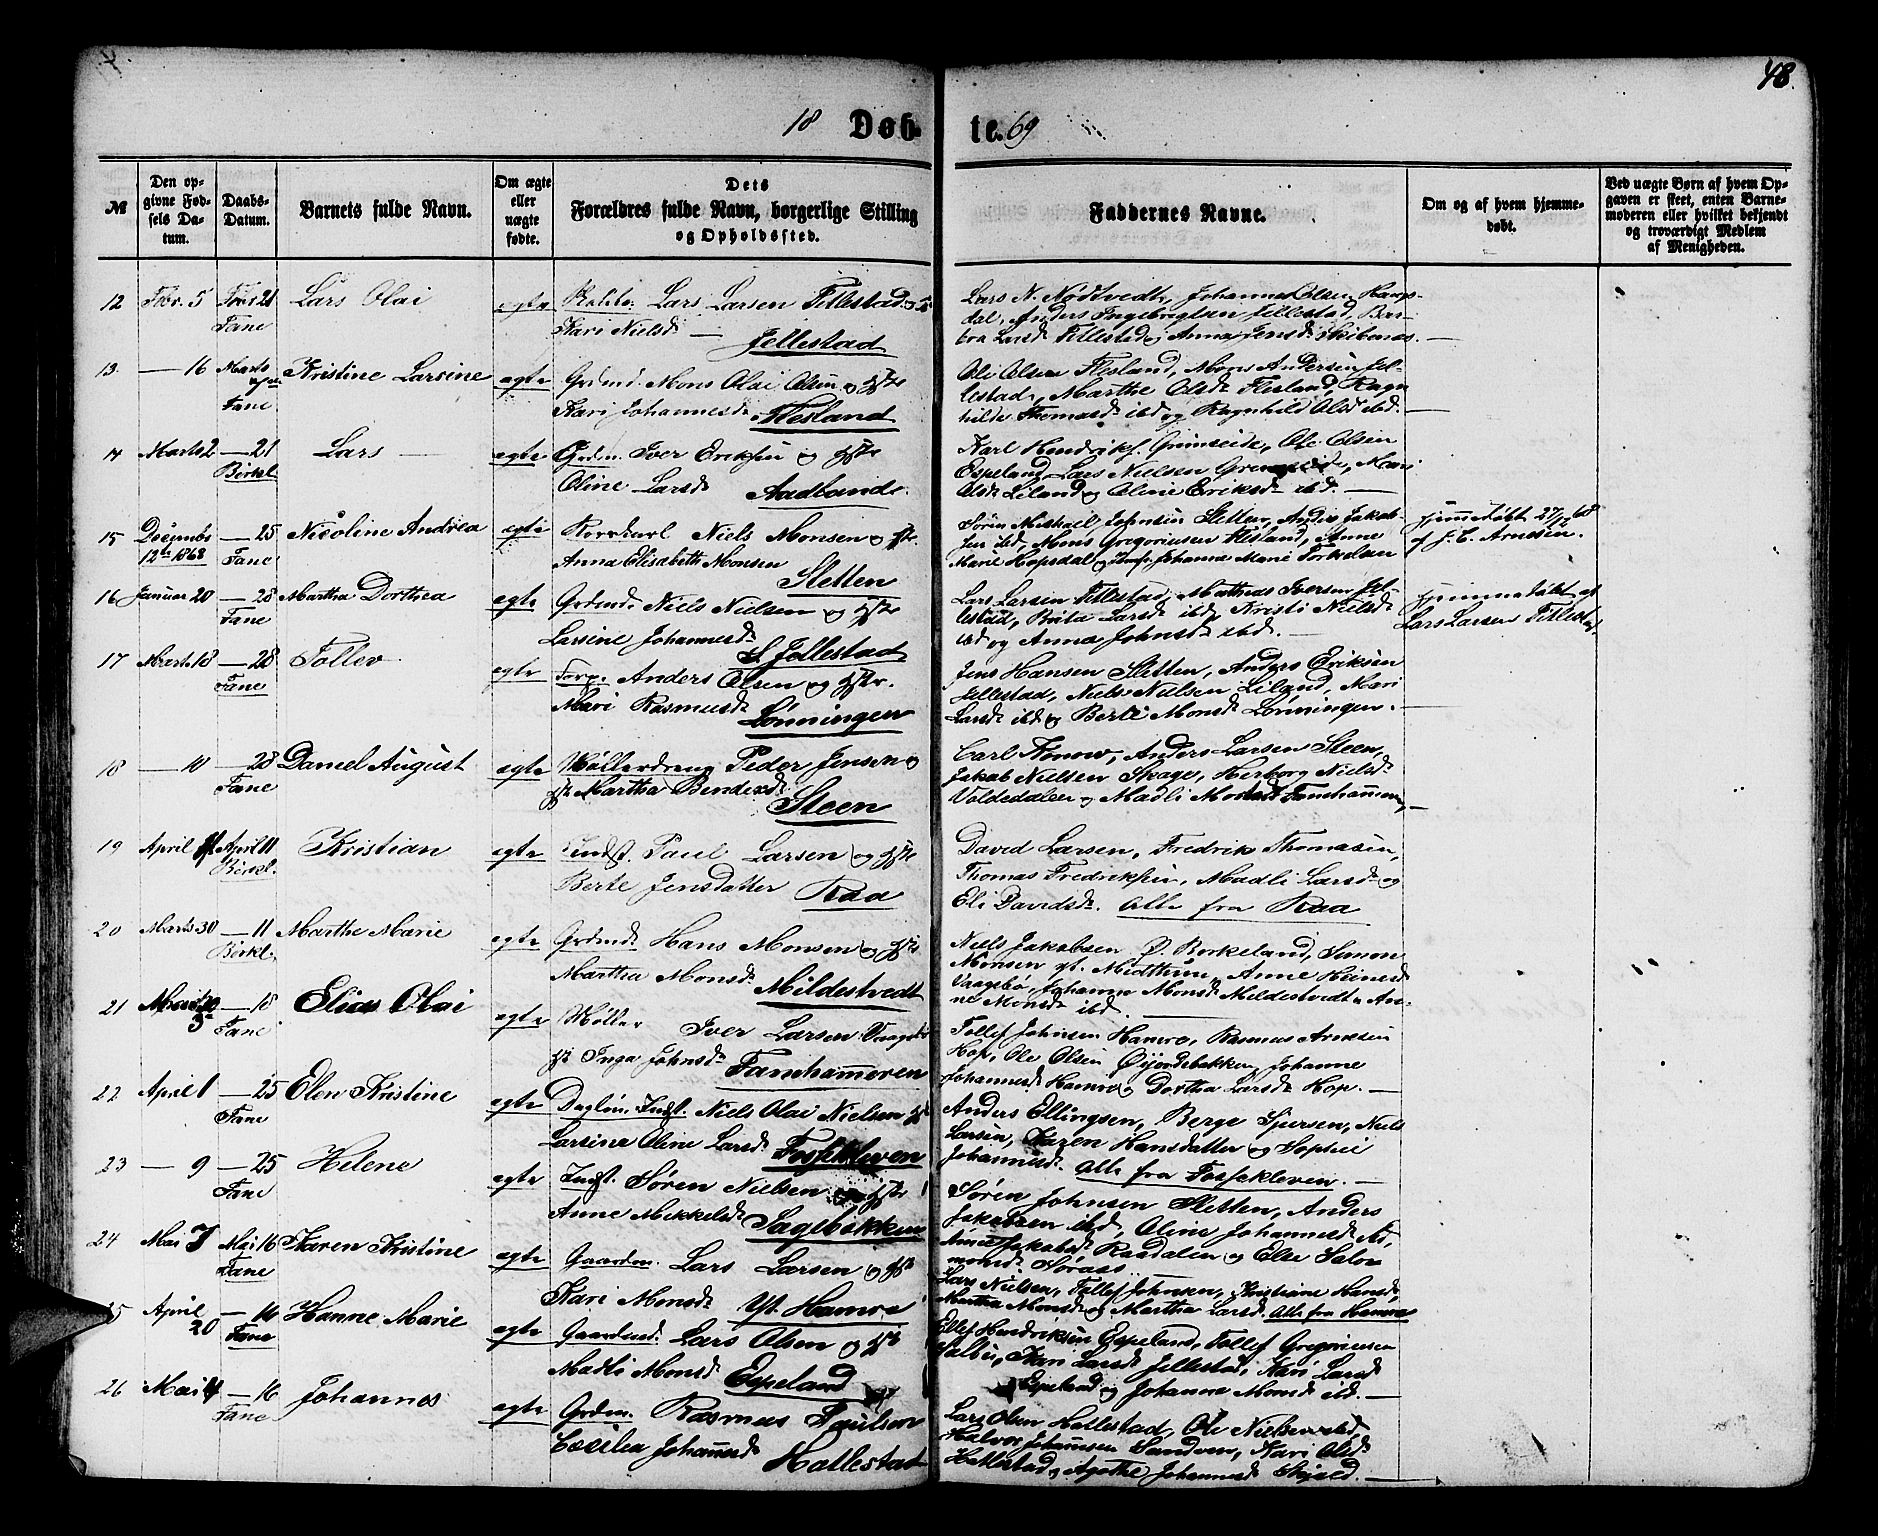 48.
18 Døb- te. 69
№
Den op-
givne Fød-
sels Da-
tum.
Daabs-
Datum.
Barnets fulde Navn.
Om ægte
eller
uægte
fødte.
Dets
Forældres fulde Navn, borgerlige Stilling
og Opholdssted.
Faddernes Navne.
Om og af hvem hjemme-
døbt.
Ved uægte Børn af hvem Op-
gaven er skeet, enten Barne-
moderen eller hvilket bekjendt
og troværdigt Medlem
af Menigheden.
12 Febr. 5 Febr 21 Lars Olai egte Lars Larsen Titlestad
Fane Kari Nielsd — Jellestad
Lars N. Nødtvedt, Johannes Olsen Haugs-
dal, Anders Ingebrigtsen Jellestad, Ber-
tra Larsd Titlestad og Anna Jensd Skibenæs.
13 — 16 Marts Kristine Larsine egte Grdmd. Mons Olai Olsen og Hstr
Fane Kari Johannesd Flesland
Ole Olsen Flesland, Mons Andersen Jel-
lestad, Marthe Olsd Flesland, Ragn
hilde Thomasd ibd og Ragnhild Olsd ibd. —
14 Marts 2 — 21 Lars — egte Grdm. Iver Eriksen og Hstr
Birkl. Oline Larsd Aadlands.
Karl Hendriks. Grimseide, Ole Olsen
Espeland, Lars Nielsen Grimseide, Mari
Olsd Liland og Oline Eriksd ibd. —
15 Decembr — 25 Nicoline Andrea egte Niels Monsen og Hstr.
12te 1868 Fane Anna Elisabeth Monsen
Sletten
Søren Michael Johnsen Sletten, Anders Jakob-
sen ibd, Mons Gregoriusen Flesland, Anne
Marie Hopsdal og Jomfr. Johanna Marie Torkelsen
hjemmedøbt 27/12 68
af J. E. Arnesen.
16 Januar 20 — 28 Martha Dorthea egte Grdmd. Niels Nielsen og Hstr
Fane Larsine Johannesd
S. Jellestad
Lars Larsen Titlestad, Mathias Iversen Jel-
lestad, Brita Larsd ibd Kristi Nielsd
ibd og Anna Johnsd ibd. —
hjemmedøbt af
Lars Larsen Titlestad
17 Marts 18 — 28 Tollev egte Torp. Anders Olsen og Hstr.
Fane Mari Rasmusd
Lønningen
Jens Hansen Sletten, Anders Eriksen
Jellestad, Niels Nielsen Liland, Mari
Larsd ibd og Berte Monsd Lønningen. —
18 — 10 — 28 Daniel August egte Møllerdreng Peder Jensen og
Fane Hstr Martha Bendixd
Steen
Carl Konow, Anders Larsen Steen,
Jakob Nielsen Skage, Herborg Nielsd
Voldedalen og Madli Monsd Fanehammeren, —
19 April April 11 Kristian egte Indst. Paul Larsen og Hstr
Birkl. Berte Jensdatter Raa
David Larsen, Fredrik Thomasen,
Thomas Fredriksen, Madli Larsd og
Eli Davidsd. Alle fra Raa
20 Marts 30 — 11 Marthe Marie egte Grdmd Hans Monsen og Hstr
Birkl. Martha Monsd. Mildestvedt
Niels Jakobsen Ø. Borkeland, Simon
Monsen yt. Midthun, Anne Heinesd
Vaagebø, Johanna Monsd Mildestvedt og An-
ne Monsd ibd. —
21 — 18 Elias Olai egte Møller Iver Larsen
Fane Hst Inga Johnsd
Fanehammeren
Tollef Johnsen Hamre, Rasmus Arnesen
Hop, Ole Olsen Øijordsbakken, Johanne
Johannesd Hamre og Dorthea Larsd Hop. —
22 April 1 — 25 Elen Kristine egte Dagløn. Indst. Niels Olai Nielsen
Fane Larsine Oline Larsd
Fossekleven
Anders Ellingsen, Berge Sjursen, Niels
Larsen, Karen Hansdatter og Sophie
Johannesd. Alle fra Fossekleven. —
23 — 9 — 25 Helene egte Indst. Søren Nielsen og Hstr
Fane Anne Mikkelsd
Sagebakken
Søren Johnsen Sletten, Anders
Jakobsen ibd, Oline Johannesd ibd,
Anne Jakobsd Raadalen og Else Salo-
monsd Søraas —
24 Mai 7 Mai 16 Karen Kristine egte Gaardm. Lars Larsen og Hstr
Fane Kari Monsd Yt. Hamre
Lars Nielsen, Tollef Johnsen, Kristiane Hansd,
Martha Monsd og Martha Larsd. Alle fra Hamre
25 April — 16 Hanne Marie egte Gaardmd. Lars Olsen og Hstr
20 Fane Madli Monsd
Espeland
Ellef Hendriksen Espeland, Tollef Gregoriusen
Kari Larsd Jellestad, Kari Larsd
Espeland og Johanne Monsd ibd. —
26 Mai 4 — 16 Johannes egte Grdm. Rasmus Paulsen
Fane Cecilia Johannesd
Hallestad
Lars Olsen Hallestad, Ole Nielsen ibd,
Halvor Johannesen Sandven, Kari Olsd
Hallestad og Agathe Johannesd Skjold. —